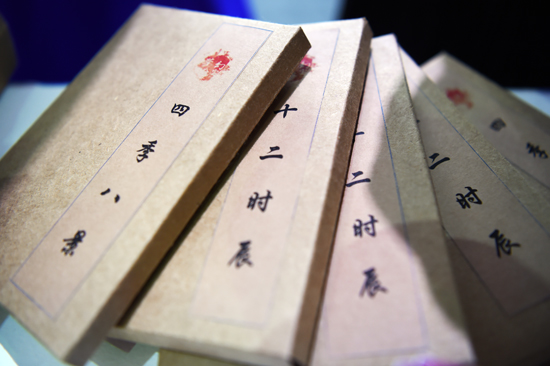 四季八景
十二时辰
二时辰
二时辰
四季